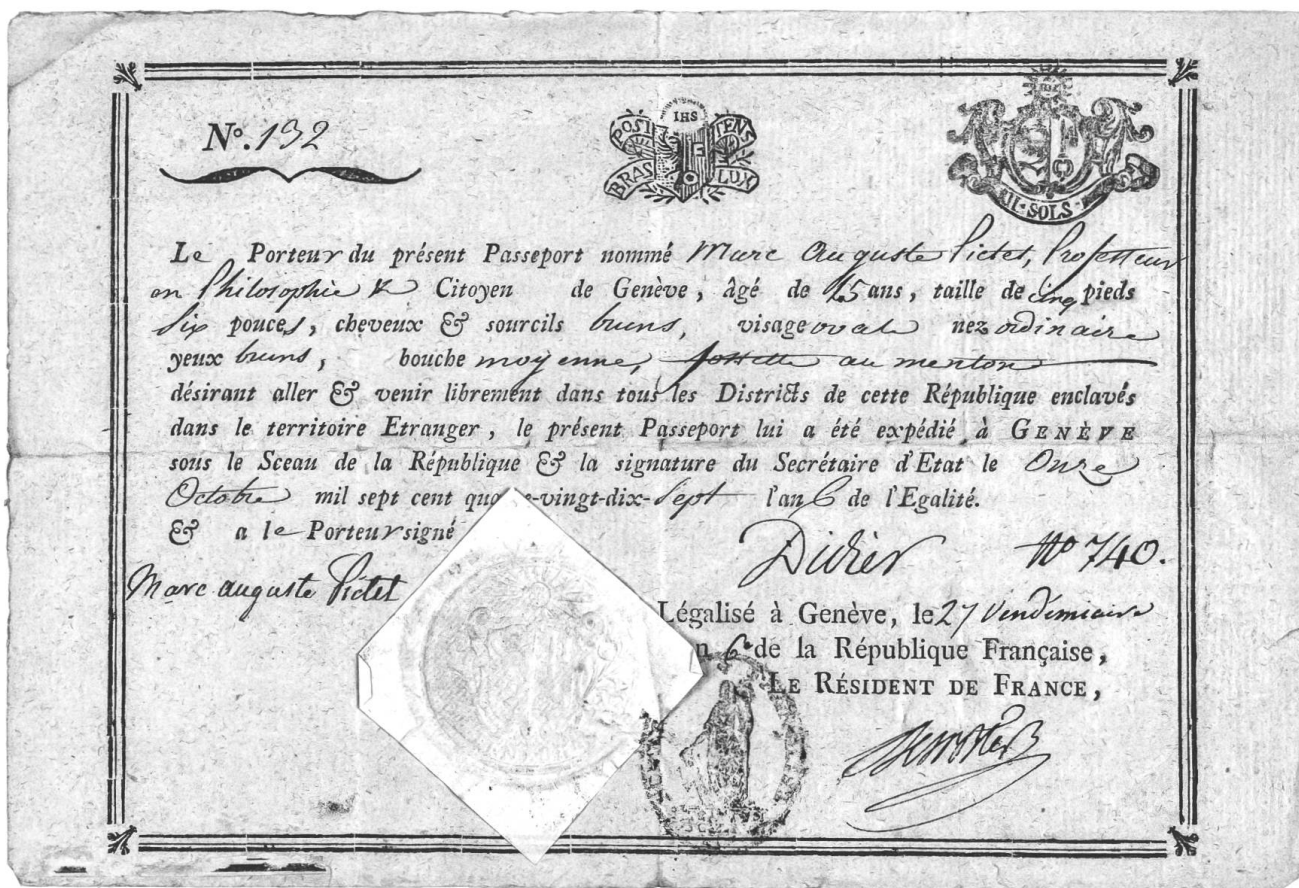 N°. 132
POST TENEBRAS LUX
IHS
II·SOLS
Le Porteur du présent Passeport nommé Marc Auguste Pictet, Professeur
en Philosophie & Citoyen de Genève, âgé de 45 ans, taille de cinq pieds
six pouces, cheveux & sourcils bruns, visage ovale nez ordinaire
yeux bruns, bouche moyenne, fossette au menton
désirant aller & venir librement dans tous les Districts de cette République enclavés
dans le territoire Etranger, le présent Passeport lui a été expédié à GENÈVE
sous le Sceau de la République & la signature du Secrétaire d'Etat le Onze
Octobre mil sept cent quatre-vingt-dix-sept l'an 6 de l'Egalité.
& a le Porteur signé
Didier N° 740.
Marc auguste Pictet
Légalisé à Genève, le 27 Vendémiaire
an 6e de la République Française,
LE RÉSIDENT DE FRANCE,